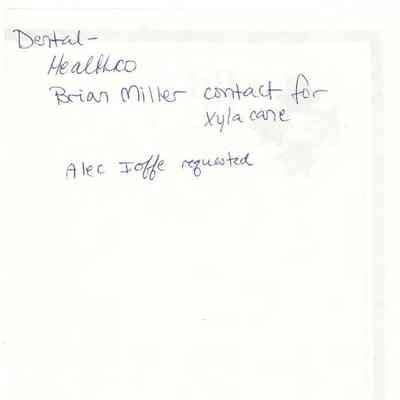 Dental -
Healthco
Brian Miller contact for
xylacane
Alec Ioffe requested